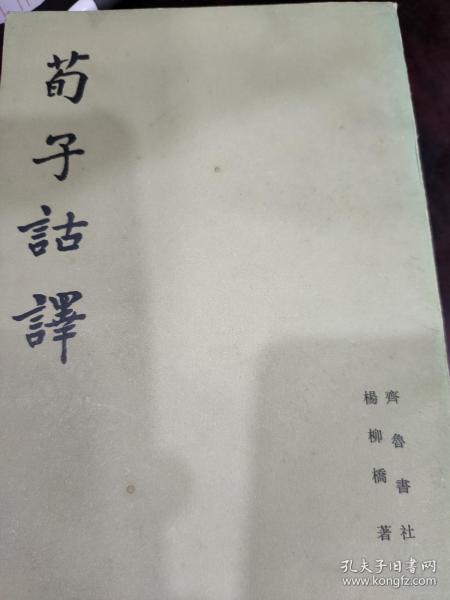 荀子詁譯
楊柳橋著
齊魯書社
孔夫子旧书网
www.kongfz.com